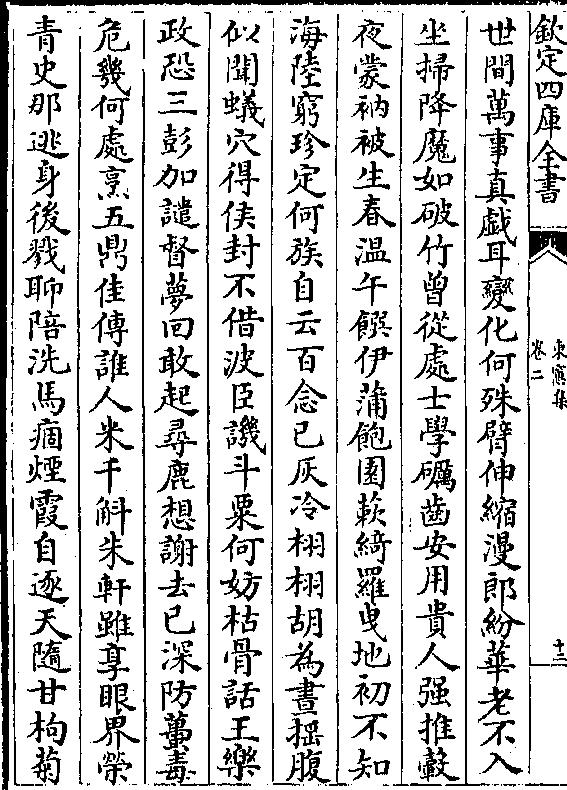 欽定四庫全書
東窻集
卷二
十三
世間萬事真戯耳變化何殊臂伸縮漫郎紛華老不入
坐掃降魔如破竹曾從處士學礪齒安用貴人强推轂
夜蒙衲被生春温午饌伊蒲飽園蔌綺羅曵地初不知
海陸窮珍定何族自云百念已灰冷栩栩胡為晝摇腹
似聞蟻穴得侯封不借波臣譏斗粟何妨枯骨話王樂
政恐三彭加譴督夢回敢起尋鹿想謝去已深防蠆毒
危幾何處烹五鼎佳傳誰人米千斛朱軒雖享眼界榮
青史那逃身後戮聊陪洗馬痼煙霞自逐天隨甘枸菊